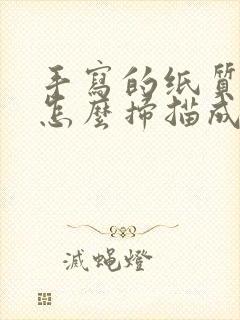 手寫的纸質
怎麼掃描成
滅蝇燈